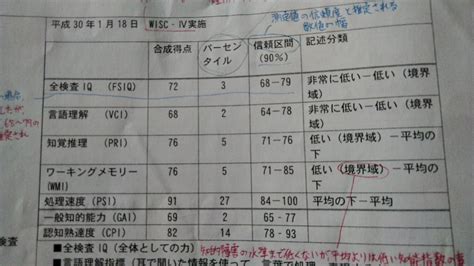 平成30年1月18日 WISC-Ⅳ実施
測定値の信頼度と推定される
数値の幅
合成得点 パーセンタイル 信頼区間(90%) 記述分類
全検査IQ (FSIQ) 72 3 68-79 非常に低い-低い(境界域)
言語理解 (VCI) 68 2 64-78 非常に低い-低い(境界域)
知覚推理 (PRI) 76 5 71-76 低い(境界域)-平均の下
ワーキングメモリー(WMI) 76 5 71-85 低い(境界域)-平均の下
処理速度 (PSI) 91 27 84-100 平均の下-平均
一般知的能力 (GAI) 69 2 65-77
認知熟達度 (CPI) 82 14 78-93
検査
■全検査IQ(全体としての力)
知的障害の水準まで低くないが平均よりは低い知能指数の